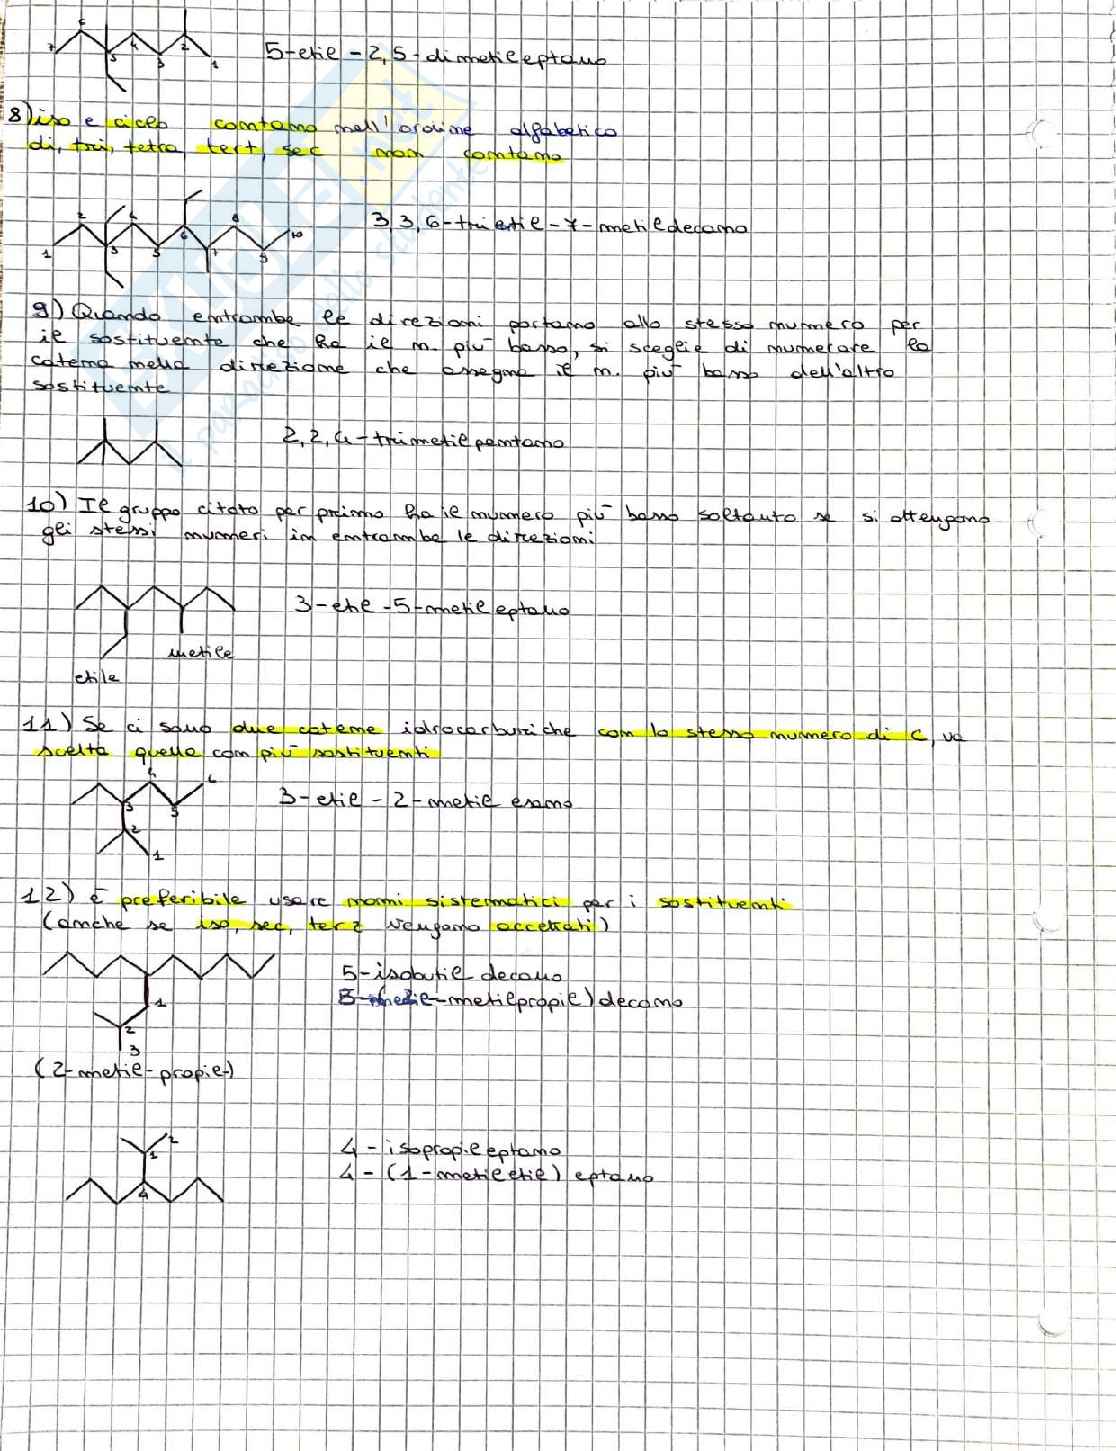 7 6 5 4 3 2 1
5-etil-2,5-dimetileptano
8) iso e ciclo contano nell'ordine alfabetico
di, tri, tetra, tert, sec non contano
1 2 3 4 5 6 7 8 9 10
3,3,6-trietil-7-metildecano
9) Quando entrambe le direzioni portano allo stesso numero per
il sostituente che ha il n. più basso, si sceglie di numerare la
catena nella direzione che assegna il n. più basso dell'altro
sostituente
2,2,4-trimetilpentano
10) Il gruppo citato per primo ha il numero più basso soltanto se si ottengono
gli stessi numeri in entrambe le direzioni
3-etil-5-metileptano
metile
etile
11) Se ci sono due catene idrocarburiche con lo stesso numero di C, va
scelta quella con più sostituenti
4 6 3 5 2 1
3-etil-2-metil esano
12) È preferibile usare nomi sistematici per i sostituenti
(anche se iso, sec, terz vengano accettati)
5-isobutil decano
1
metilpropil) decano
2
3
(2-metil-propil)
2
1
4-isopropileptano
4-(1-metiletil) eptano
4